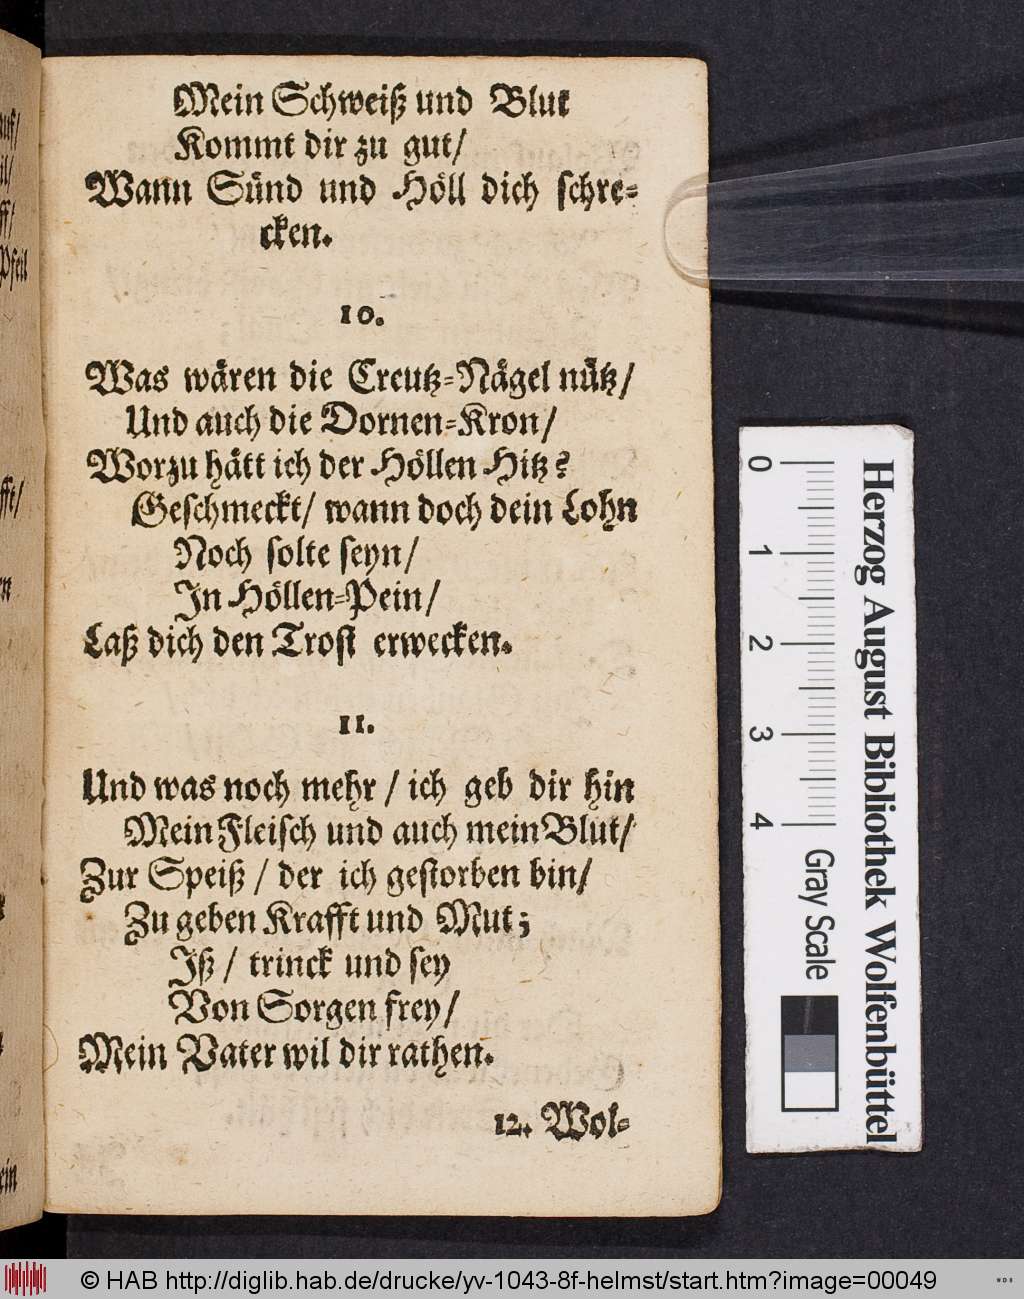 Mein Schweiß und Blut
Kommt dir zu gut/
Wann Sünd und Höll dich schre-
cken.
10.
Was wären die Creutz-Nägel nütz/
Und auch die Dornen-Kron/
Worzu hätt ich der Höllen Hitz?
Geschmeckt/ wann doch dein Lohn
Noch solte seyn/
In Höllen-Pein/
Laß dich den Trost erwecken.
11.
Und was noch mehr / ich geb dir hin
Mein Fleisch und auch mein Blut/
Zur Speiß / der ich gestorben bin/
Zu geben Krafft und Mut;
Iß / trinck und sey
Von Sorgen frey/
Mein Vater wil dir rathen.
12. Wol-
Herzog August Bibliothek Wolfenbüttel
0 1 2 3 4 Gray Scale
© HAB http://diglib.hab.de/drucke/yv-1043-8f-helmst/start.htm?image=00049